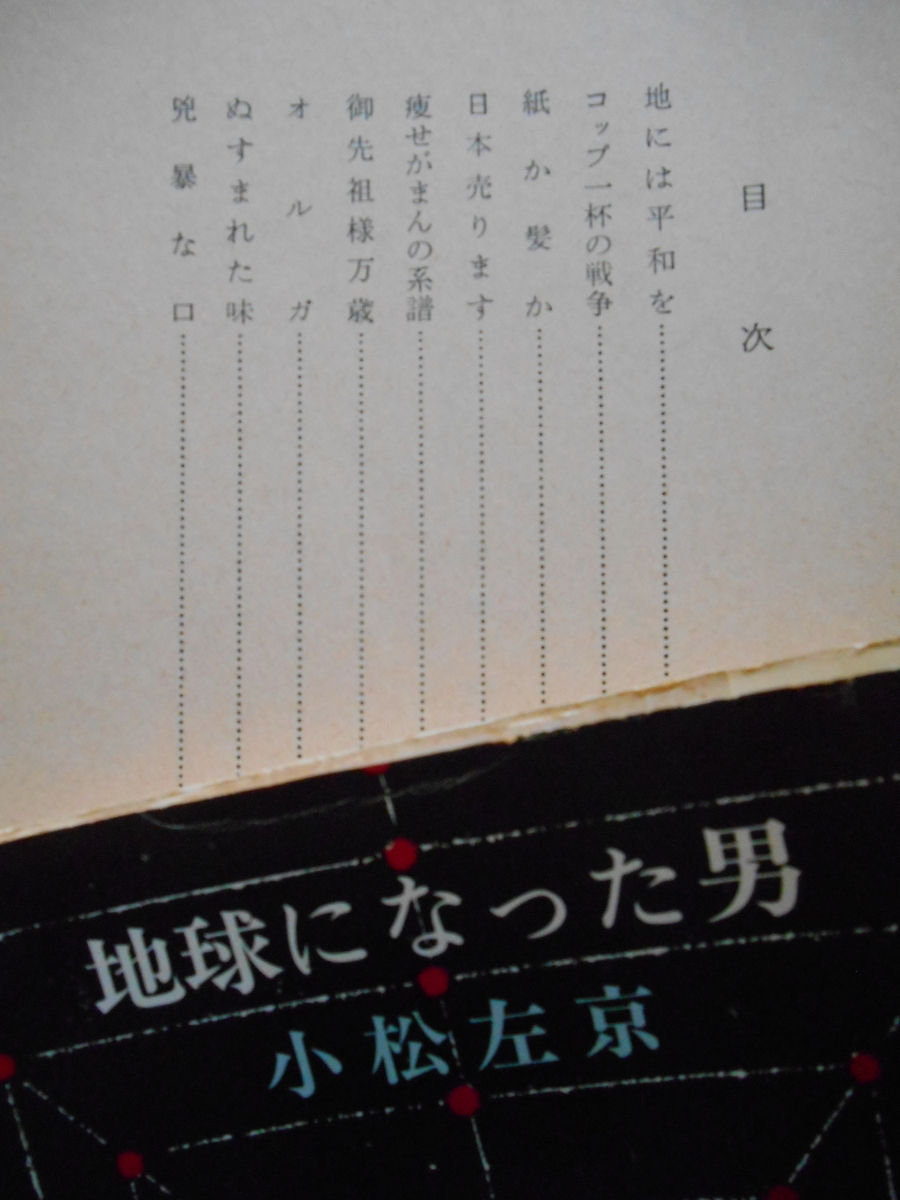 目次
地には平和を
コップ一杯の戦争
紙か髪か
日本売ります
痩せがまんの系譜
御先祖様万歳
オルガ
ぬすまれた味
兇暴な口
地球になった男
小松左京